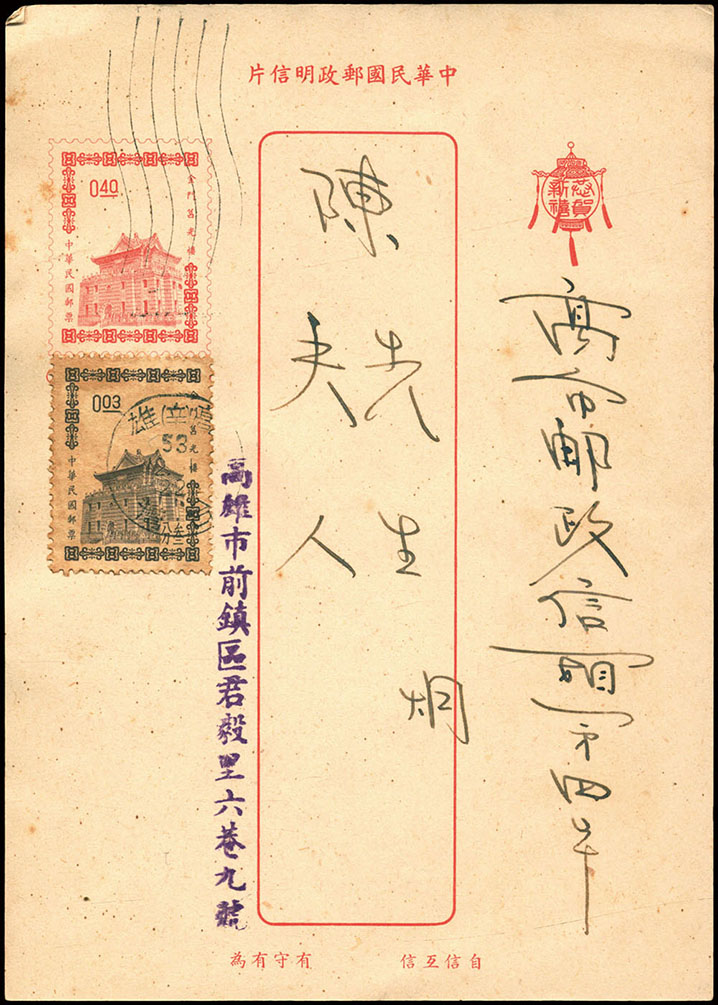 中華民國郵政明信片
恭賀新禧
高市郵政信箱
陳
先生
夫人
炯
0.40
金門莒光樓
中華民國郵票
0.03
莒光樓
中華民國郵票
53
高雄市前鎮區君毅里六巷九號
自信互信 有守有為